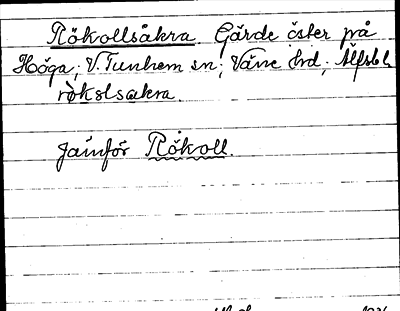 Rökollsåkra. Gärde öster på
Höga; V. Tunhem sn; Väne hd; Älfsbl.
rökslsakra.
Jämför Rökoll.